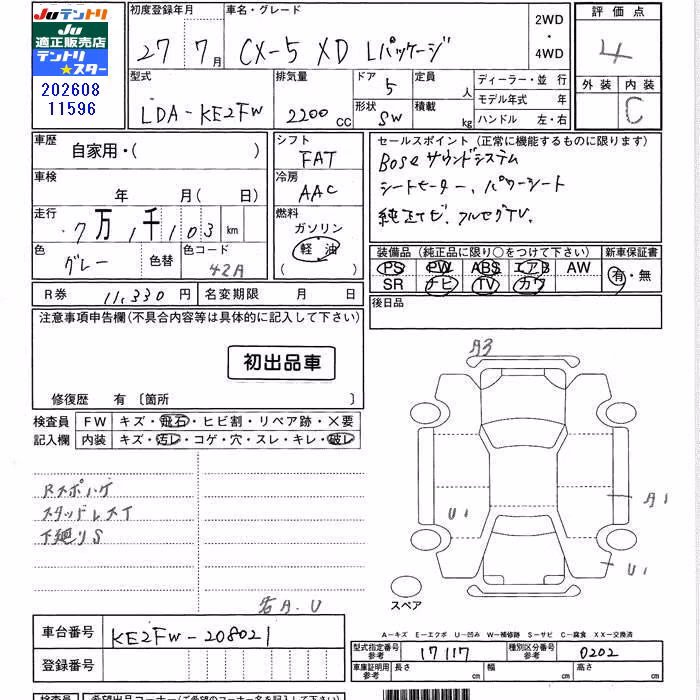 Juテントリ
Ju
適正販売店
テントリ
★スター
202608
11596
初度登録年月
27 7月
車名・グレード
CX-5 XD Lパッケージ
2WD
・
4WD
評価点
4
外装 内装
C
型式
LDA-KE2FW
排気量
2200cc
ドア
5
形状
SW
定員
人
積載
kg
ディーラー・並行
モデル年式 年
ハンドル 左・右
車歴
自家用・( )
車検
年 月( 日)
走行
7万1千103km
色
グレー
色替
色コード
42A
シフト
FAT
冷房
AAC
燃料
ガソリン
軽油
( )
セールスポイント(正常に機能するものに限ります)
BOSEサウンドシステム
シートヒーター、パワーシート
純正ナビ、フルセグTV、
装備品(純正品に限り○をつけて下さい)
PS PW ABS エアB AW
SR ナビ TV カワ
新車保証書
有・無
R券 11,330円
名変期限 月 日
後日品
注意事項申告欄(不具合内容等は具体的に記入して下さい)
初出品車
修復歴 有〔箇所 〕
検査員
記入欄
FW キズ・飛石・ヒビ割・リペア跡・×要
内装 キズ・汚レ・コゲ・穴・スレ・キレ・破レ
Rスポハゲ
スタッドレスT
下廻りS
各A.U
A3
U1
A1
U1
スペア
A―キズ E―エクボ U―凹み W―補修跡 S―サビ C―腐食 XX―交換済
車台番号 KE2FW-208021
登録番号
型式指定番号
参考
17117
種別区分番号
参考
0202
車庫証明用
参考
長さ cm
幅 cm
高さ cm
検査員
希望出品コーナー(ご希望のコーナー名を記入して下さい)